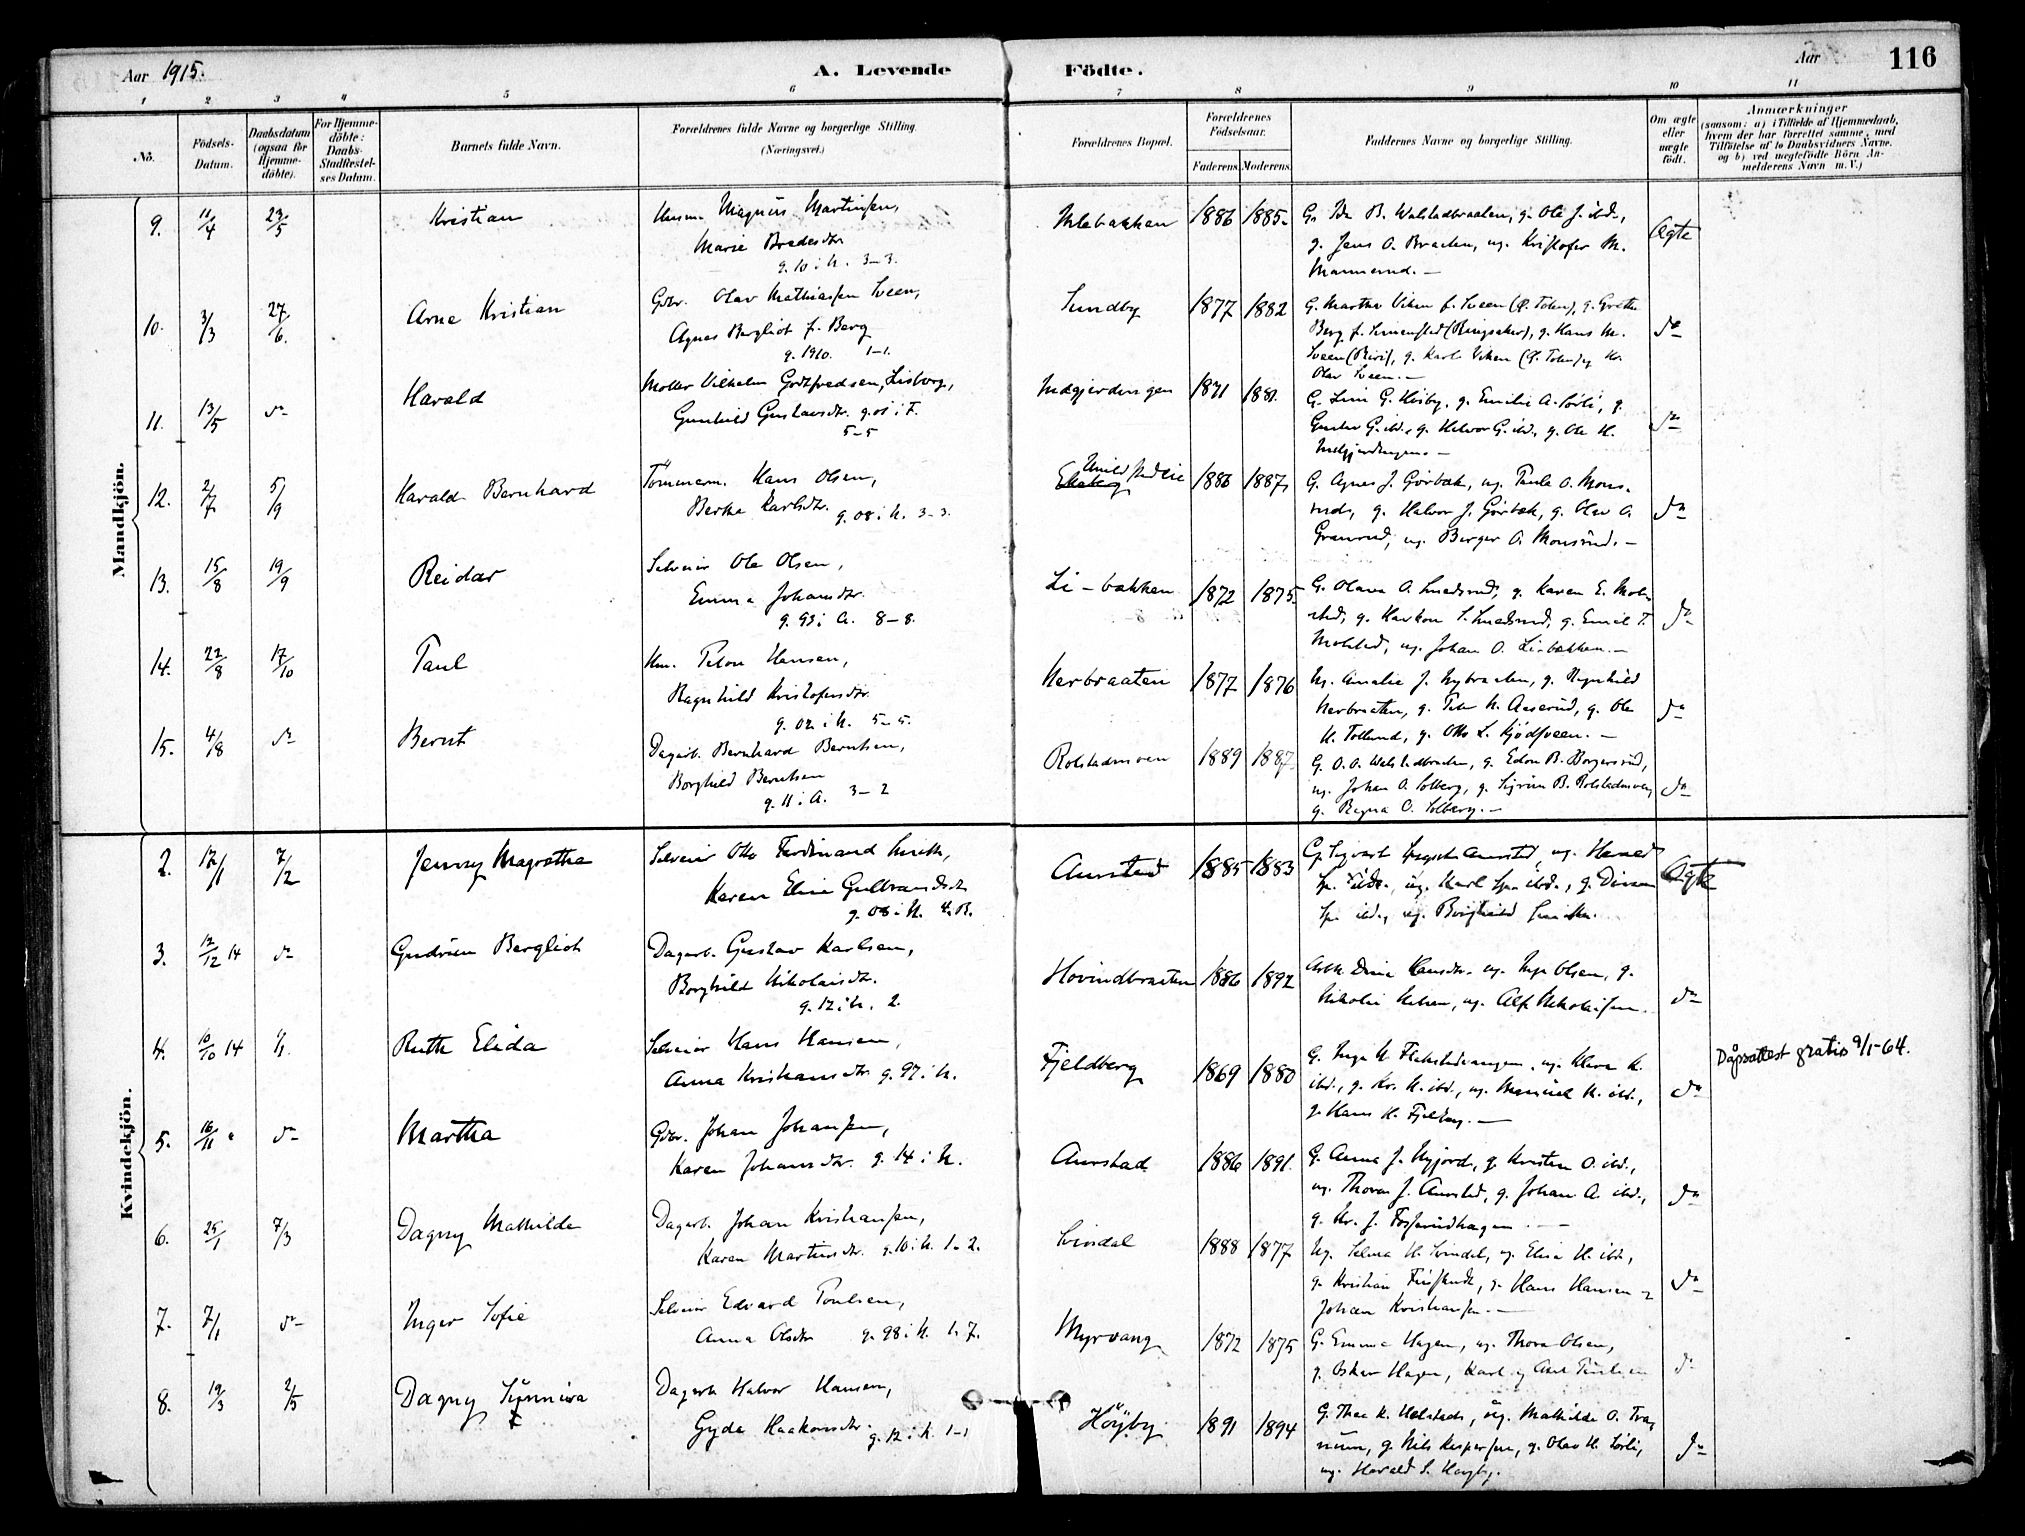 Aar 1915.
A. Levende Födte.
Aar
116
1 2 3 4 5 6 7 8 9 10 11
No.
Födsels-Datum.
Daabsdatum (ogsaa for Hjemme-döbte).
For Hjemme-döbte: Daabs-Stadfæstel-ses Datum.
Barnets fulde Navn.
Forældrenes fulde Navne og borgerlige Stilling.
(Næringsvei.)
Forældrenes Bopæl.
Forældrenes Födselsaar.
Faderens. Moderens.
Faddernes Navne og borgerlige Stilling.
Om ægte eller uægte födt.
Anmærkninger
(saasom: a) i Tilfælde af Hjemmedaab, hvem der har forrettet samme, med Tilföielse af to Daabsvidners Navne. og b) ved uægtefödte Börn An-melderens Navn m.V.)
Mandkjön.
9. 11/4 23/5 Kristian
Magnus Martinsen,
Marie
g. 10 i N. 3-3.
1886 1885.
g. Ole J. ibd.,
g. Jens O. Braaten, ug. Kristofer M.
Ægte
10. 3/3 27/6. Arne Kristian
Gbr. Olav Mathiassen Sveen,
Agnes Bergliot f. Berg
g. 1910. 1-1.
Sundby 1877 1882
G. Martha Viken f. Sveen (Ø. Toten), g. Grethe
Berg f. (Ringsaker), g. Hans M.
Sveen (Biri), g. Karl Viken (Ø. Toten) og
Olav Sveen. -
do
11. 13/5 do Harald
Vilhelm Godtfredsen,
Gunhild Gustavsdtr. g. 01 i F.
5-5
1871 1881.
g. Emilie A. Sørli, g.
Gustav G. ibd., g. Halvor G. ibd., g. Ole H.
do
12. 2/7 5/9 Harald Bernhard
Tömmerm. Hans Olsen,
Berthe Karlsdtr. g. 08 i N. 3-3.
1886 1887.
G. Agnes J. Gorbæk, ug. Paula O. Mons-
rud, g. Halvor J. Gorbæk, g. Olav A.
Granrud, ug. Birger O. Monsrud. -
do
13. 15/8 19/9 Reidar
Selveier Ole Olsen,
Emma Johansdtr.
g. 93 i A. 8-8.
Li-bakken 1872 1875.
G. Olava O. Smedsrud, g. Karen E. Mol-
stad, g. Haakon S. Smedsrud, g. Emil T.
Molstad, ug. Johan O. Li-bakken. -
do
14. 22/8 17/10 Paul
Hansen,
Ragnhild Kristofersdtr.
g. 02 i N. 5-5.
Nerbraaten 1877 1876
Ug. Amalie J. Nybraaten, g. Ragnhild
Nerbraaten, g. Peter N. Aaserud, g. Ole
do
15. 4/8 do Bernt
Dagarb. Bernhard Berntsen,
Borghild Berntsen
g. 11 i A. 3-2
Rolstadmoen 1889 1887.
ug. Johan O. Solberg, g. Sigrun B. Rolstadmoen,
g. Ragna O. Solberg. -
do
Kvindekjön.
2. 17/1 7/2 Jenny Magrethe
Selveier Otto Ferdinand Smith,
Karen Elise Gulbrandsdtr
g. 08 i N. 4. B.
Aurstad 1885 1883
ug. Karl ibd.,
Ægte
3. 12/12 14 do Gudrun Bergliot
Dagarb. Gustav Karlsen,
Borghild Nikolaisdtr.
g. 12 i N. 2.
Hovindbraaten 1886 1892
ug. Inga Olsen, g.
ug. Alf Nikolaisen.
do
4. 10/10 14 1/1. Ruth Elida
Selveier Hans Hansen,
Anna Kristiansdtr g. 97 i N.
Fjeldberg 1869 1880
G. Inga ug. Klara K.
ibd., g. Kr. N. ibd., ug.
g. Hans H. Fjeldberg. -
do
Dåpsattest gratis 9/1-64.
5. 16/11 " do Martha
Gbr. Johan Johansen,
Karen Johansdtr. g. 14 i N.
Aurstad 1886 1891.
G. Anna J. Nyjord, g. Kristen O. ibd.,
ug. Thora J. Aurstad, g. Johan A. ibd.,
g. Kr. J. Fosserudhagen. -
do
6. 25/1 7/3 Dagny Mathilde
Dagarb. Johan Kristiansen,
Karen Martinsdtr. g. 10 i N. 1-2.
Svindal 1888 1877
Ug. Selma H. Svindal, ug. Elisa H. ibd.,
g. Kristian g. Hans Hansen
Johan Kristiansen. -
do
7. 7/1 do Inger Sofie
Selveier Edvard Poulsen,
Anna Olsdtr g. 98 i N. 1-7.
Myrvang 1872 1875
G. Emma Hagen, ug. Thora Olsen,
g. Oskar Hagen, Karl og
do
8. 19/3 2/5 Dagny Synniva
Dagarb. Halvor Hansen,
Gyda Haakonsdtr g. 12 i N. 1-1
Høyby 1891 1894
G. Thea K. ug. Mathilde O. Trag-
num, g. Nils Kaspersen, g. Olav H. Sørli,
ug. Harald S. Høyby.
do